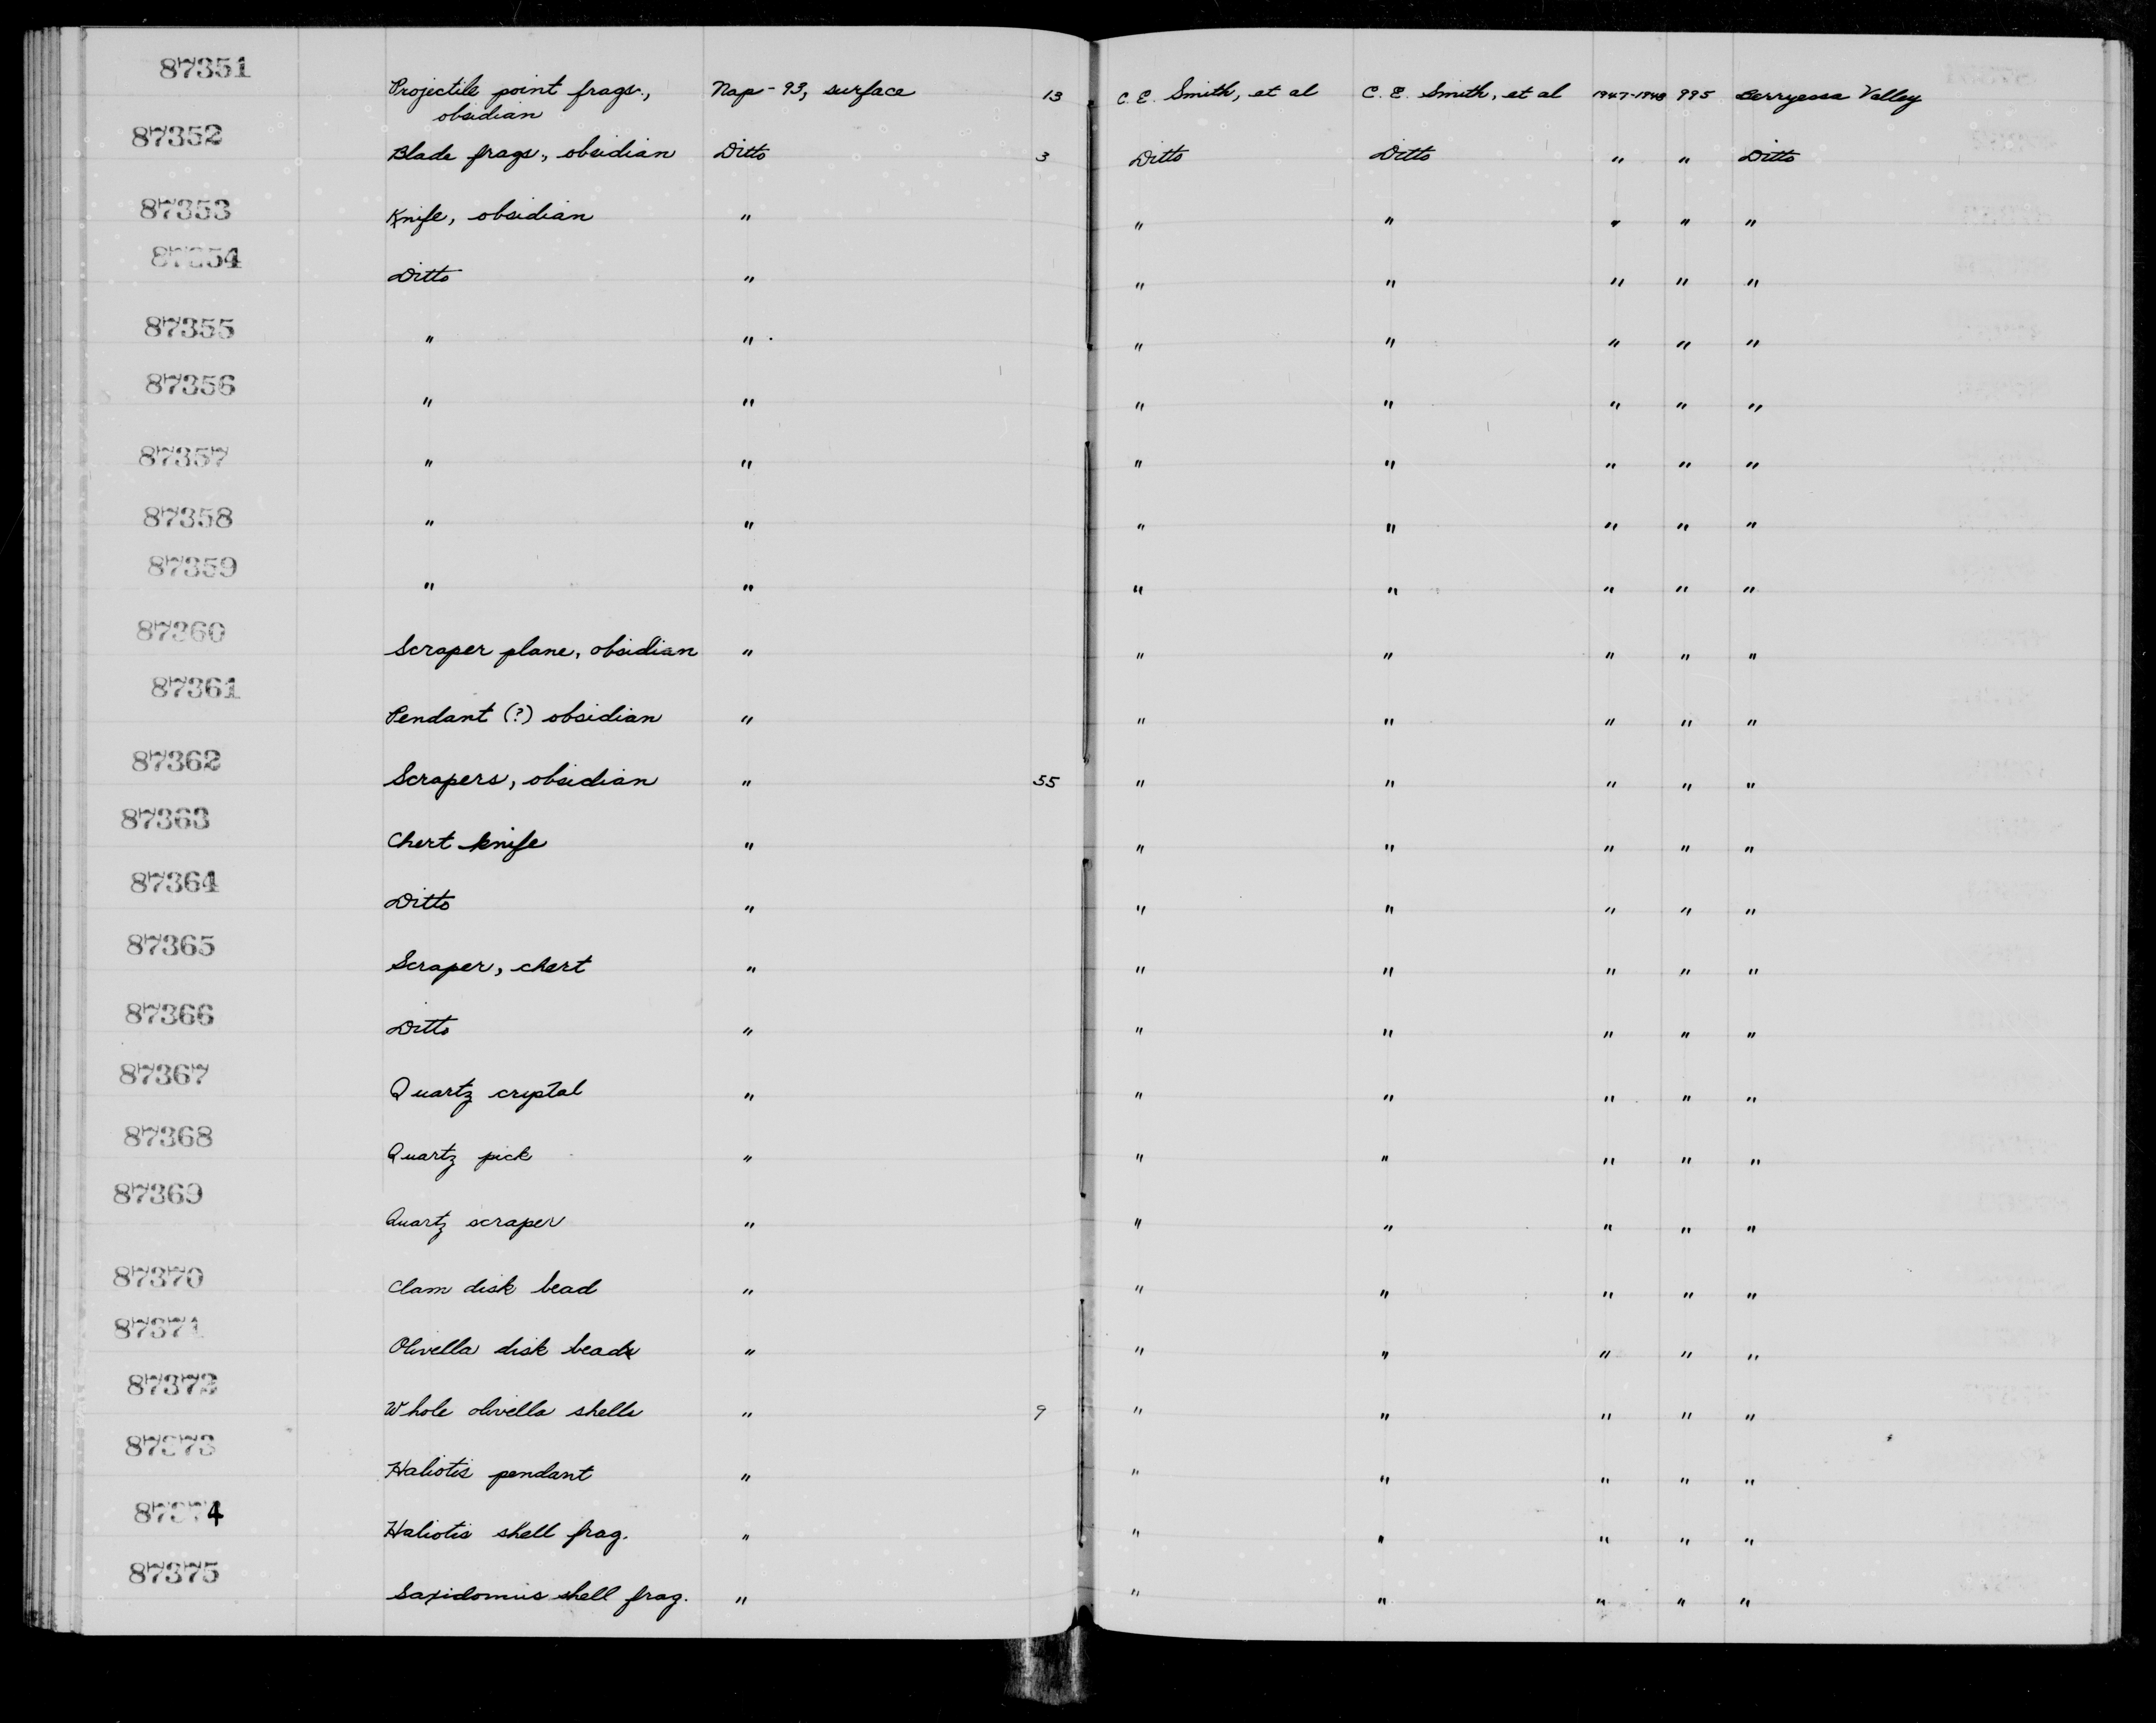 87351 Projectile point frags., Nap-93, surface 13 C. E. Smith, et al C. E. Smith, et al 1947-1948 995 Berryessa Valley
obsidian
87352 Blade frags., obsidian Ditto 3 Ditto Ditto " " Ditto
87353 Knife, obsidian " " " " " "
87354 Ditto " " " " " "
87355 " " " " " " "
87356 " " " " " " "
87357 " " " " " " "
87358 " " " " " " "
87359 " " " " " " "
87360 Scraper plane, obsidian " " " " " "
87361 Pendant (?) obsidian " " " " " "
87362 Scrapers, obsidian " 55 " " " " "
87363 Chert knife " " " " " "
87364 Ditto " " " " " "
87365 Scraper, chert " " " " " "
87366 Ditto " " " " " "
87367 Quartz cryptal " " " " " "
87368 Quartz pick " " " " " "
87369 Quartz scraper " " " " " "
87370 Clam disk bead " " " " " "
87371 Olivella disk beads " " " " " "
87372 Whole olivella shells " 9 " " " " "
87373 Haliotis pendant " " " " " "
87374 Haliotis shell frag. " " " " " "
87375 Saxidomus shell frag. " " " " " "